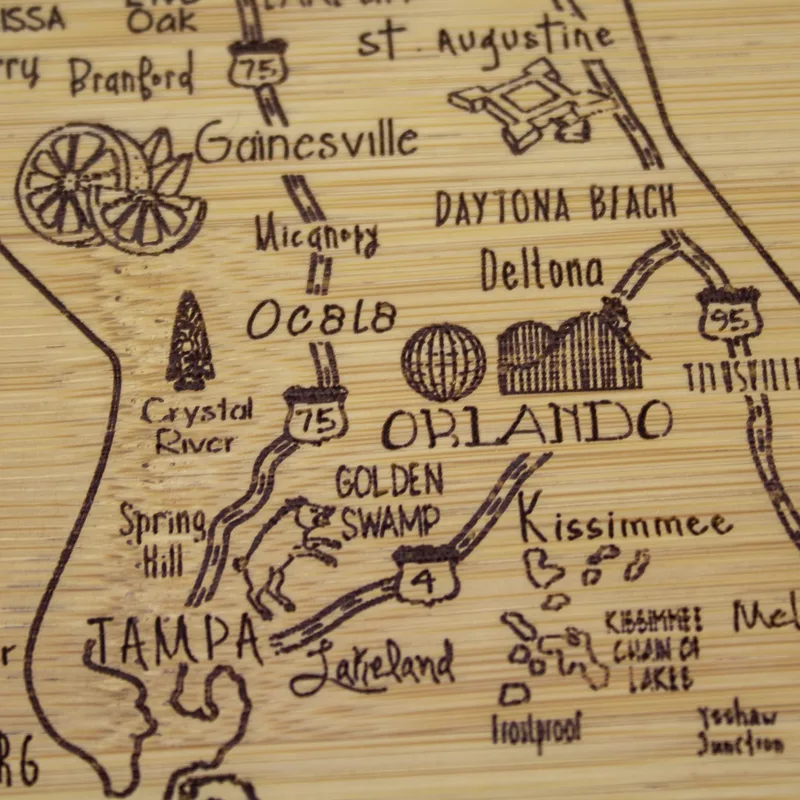 ISSA
Oak
St. Augustine
75
Branford
Gainesville
DAYTONA BEACH
Micanopy
Deltona
Ocala
95
TITUSVILL
Crystal
River
75
ORLANDO
GOLDEN
SWAMP
Spring
Hill
Kissimmee
4
TAMPA
Lakeland
KISSIMMEE
CHAIN OF
LAKES
Mel
Frostproof
Yeehaw
Junction
RG